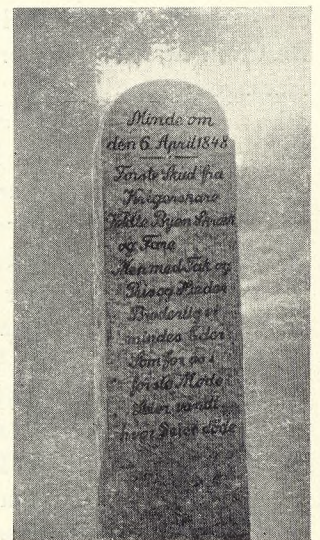 Minde om
den 6. April 1848
Første Skud fra
Krigerskare
Voldte Byen Skræk
og Fare
Men med Tak og
Pris og Hæder
Broderlig vi
mindes Eder
Som for os i
første Møde
Seier vandt
hvor Seier døde